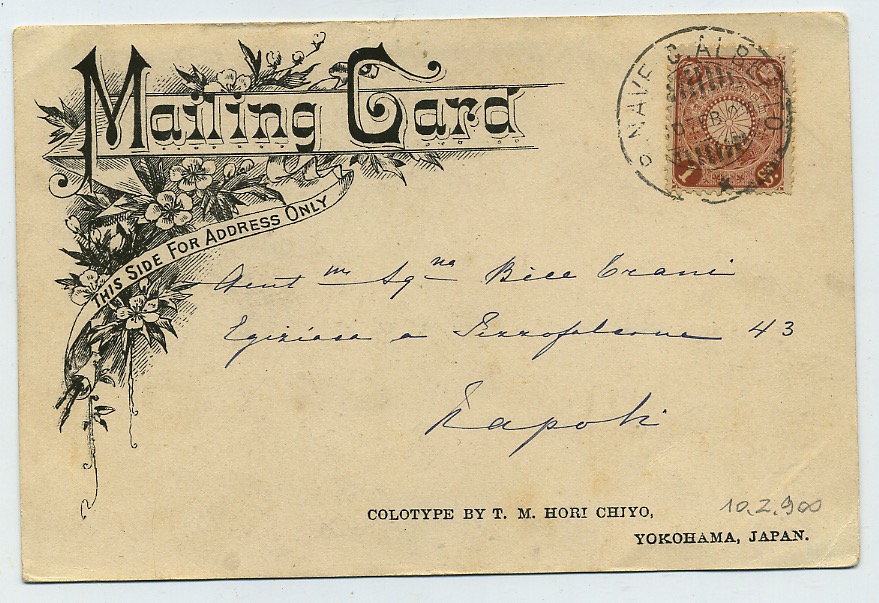 Mailing Card
THIS SIDE FOR ADDRESS ONLY
R. NAVE C. ALBERTO
1 S.
Gent ma Signa Bice Trani
Egiziaca a Pizzofalcone 43
Napoli
COLOTYPE BY T. M. HORI CHIYO,
YOKOHAMA, JAPAN.
10.2.900